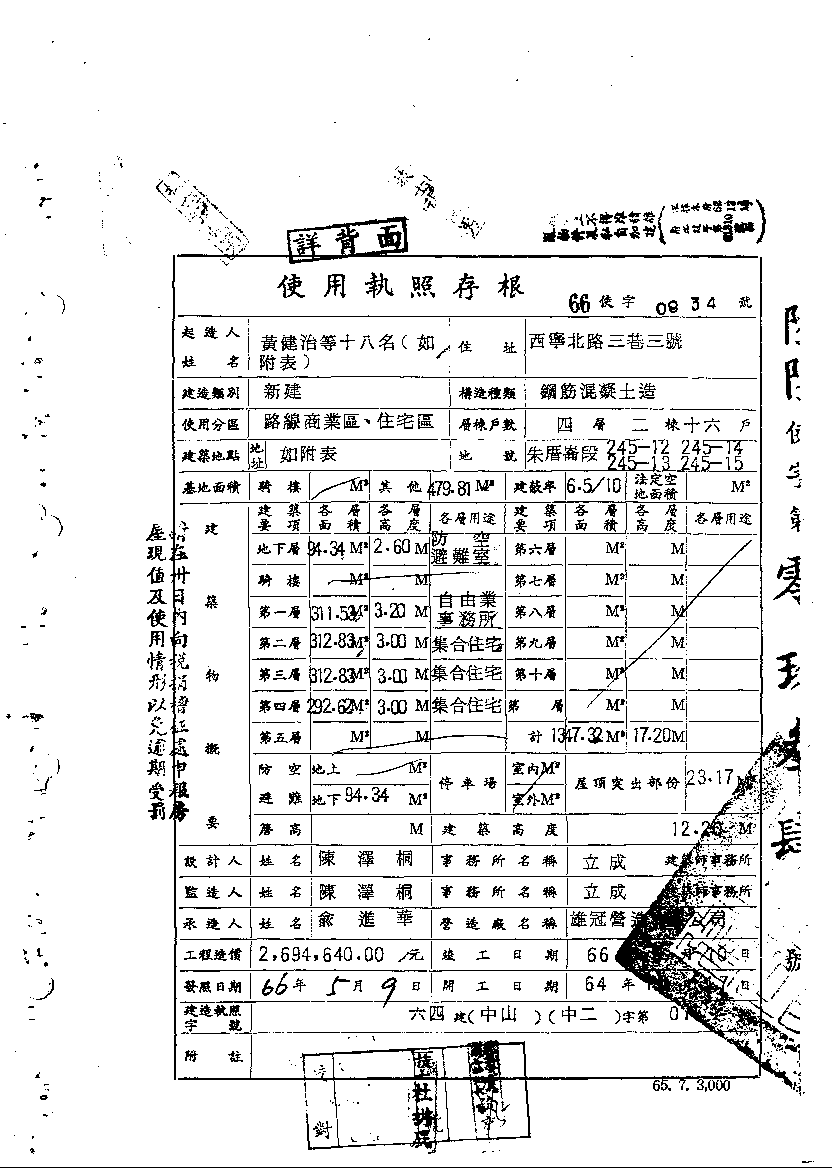 詳背面
使用執照存根
66 使字 0834 號
起造人姓名 黃健治等十八名(如附表) 住址 西寧北路三巷三號
建造類別 新建 構造種類 鋼筋混凝土造
使用分區 路線商業區、住宅區 層棟戶數 四層二棟十六戶
建築地點 地址 如附表 地號 朱厝崙段 245-12 245-14 245-13 245-15
基地面積 騎樓 M² 其他 479.81 M² 建蔽率 6.5/10 法定空地面積 M²
建築物概要
建築要項 各層面積 各層高度 各層用途 建築要項 各層面積 各層高度 各層用途
地下層 94.34 M² 2.60 M 防空避難室 第六層 M² M
騎樓 M² M 第七層 M² M
第一層 311.53 M² 3.20 M 自由業事務所 第八層 M² M
第二層 312.83 M² 3.00 M 集合住宅 第九層 M² M
第三層 312.83 M² 3.00 M 集合住宅 第十層 M² M
第四層 292.62 M² 3.00 M 集合住宅 第 層 M² M
第五層 M² M 計 1347.32 M² 17.20 M
防空避難 地上 M² 地下 94.34 M² 停車場 室內 M² 室外 M² 屋頂突出部份 23.17
簷高 M 建築高度 12.20 M
設計人 姓名 陳澤桐 事務所名稱 立成 建築師事務所
監造人 姓名 陳澤桐 事務所名稱 立成 建築師事務所
承造人 姓名 俞進華 營造廠名稱 雄冠營造
工程造價 2,694,640.00 元 竣工日期 66 年 10 日
發照日期 66年 5月 9日 開工日期 64 年 7 日
建造執照字號 六四建(中山)(中二)字第 0
附註
65. 7. 3,000
現值及使用情形以免逾期受罰
使字第零
號
對